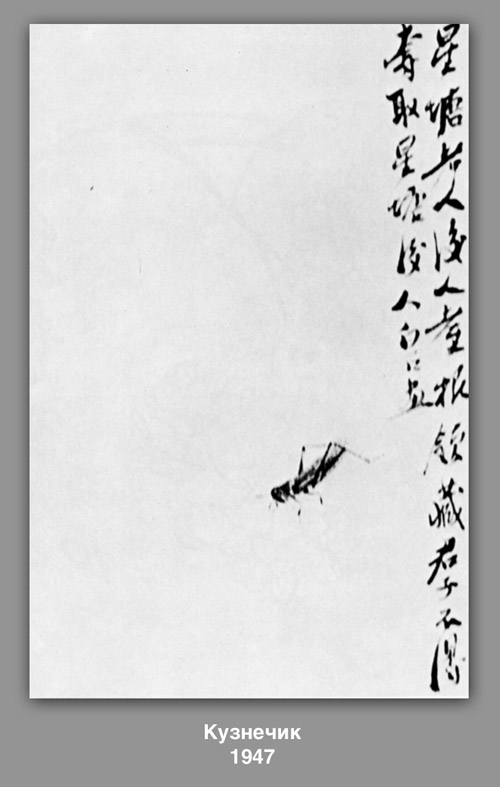 星塘老人後人根領藏君子不得
奪取星塘後人白石
Кузнечик
1947